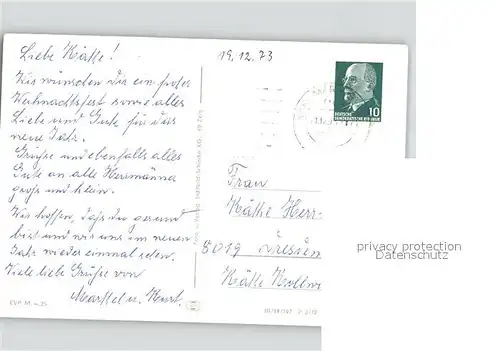 Liebe Käthe!
19.12.73
Wir wünschen Dir ein frohes
Weihnachtsfest sowie alles
Liebe und Gute für das
neue Jahr.
Grüße und ebenfalls alles
Gute an alle Herrmänner
groß und klein.
Wir hoffen, daß Du gesund
bist und wir uns im neuen
Jahr wieder einmal sehen.
Viele liebe Grüße von
u. Kurt.
10
DEUTSCHE
DEMOKRATISCHE REPUBLIK
Frau
Käthe Herr
8019 Dresden
Käthe Kollwi
EVP M
privacy protection
Datenschutz